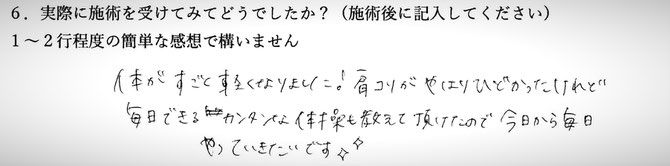 6．実際に施術を受けてみてどうでしたか？（施術後に記入してください）
1～2行程度の簡単な感想で構いません
体がすごく軽くなりました！肩コリがやはりひどかったけれど
毎日できるカンタンな体操も教えて頂けたので今日から毎日
やっていきたいです✧✧